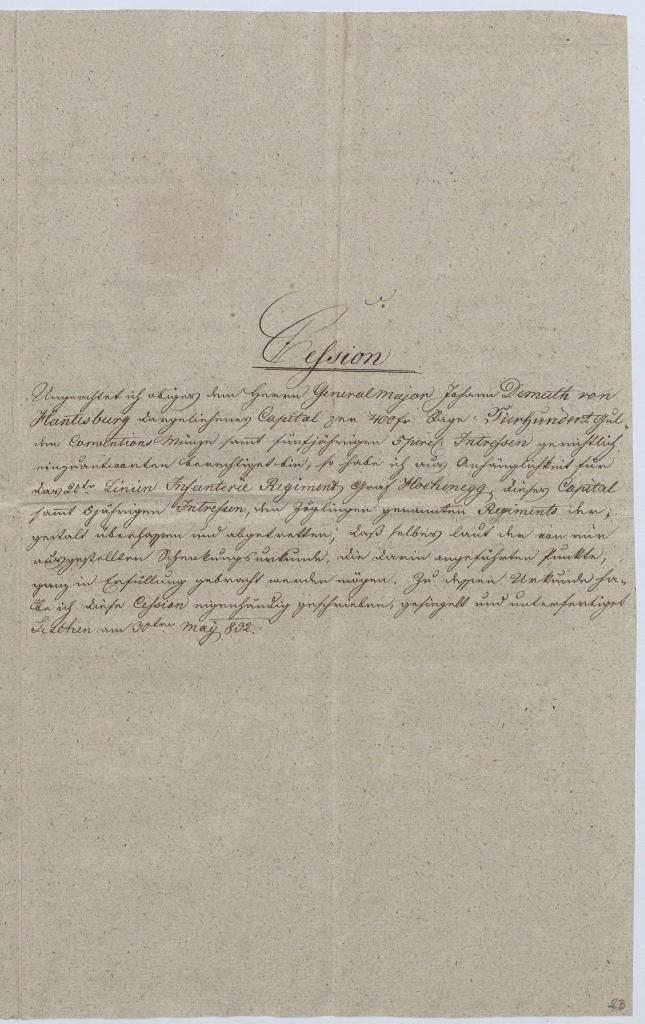 Cession
Ungeachtet ich obiges dem Herrn Generalmajor Johann Demuth von
Hantesburg dargeliehenes Capital per 400 fr. Sage: Vierhundert Gul-
den Conventions Münze sammt fünfjährigen 5 prct Intressen gerichtlich
einzuantworten berechtiget bin, so habe ich aus Anhänglichkeit für
das 20te Linien Infanterie Regiment Graf Hochenegg, dieses Capital
sammt 5jährigen Intressen, den Zöglingen genannten Regiments der-
gestalt überlassen und abgetretten, daß selbes laut der von mir
ausgestellten Schenkungsurkunde, die darin angeführten Punkte,
ganz in Erfüllung gebracht werden mögen. Zu dessen Urkunde ha-
be ich diese Cession eigenhändig geschrieben, gesiegelt und unterfertiget
am 30ten May 832.
23